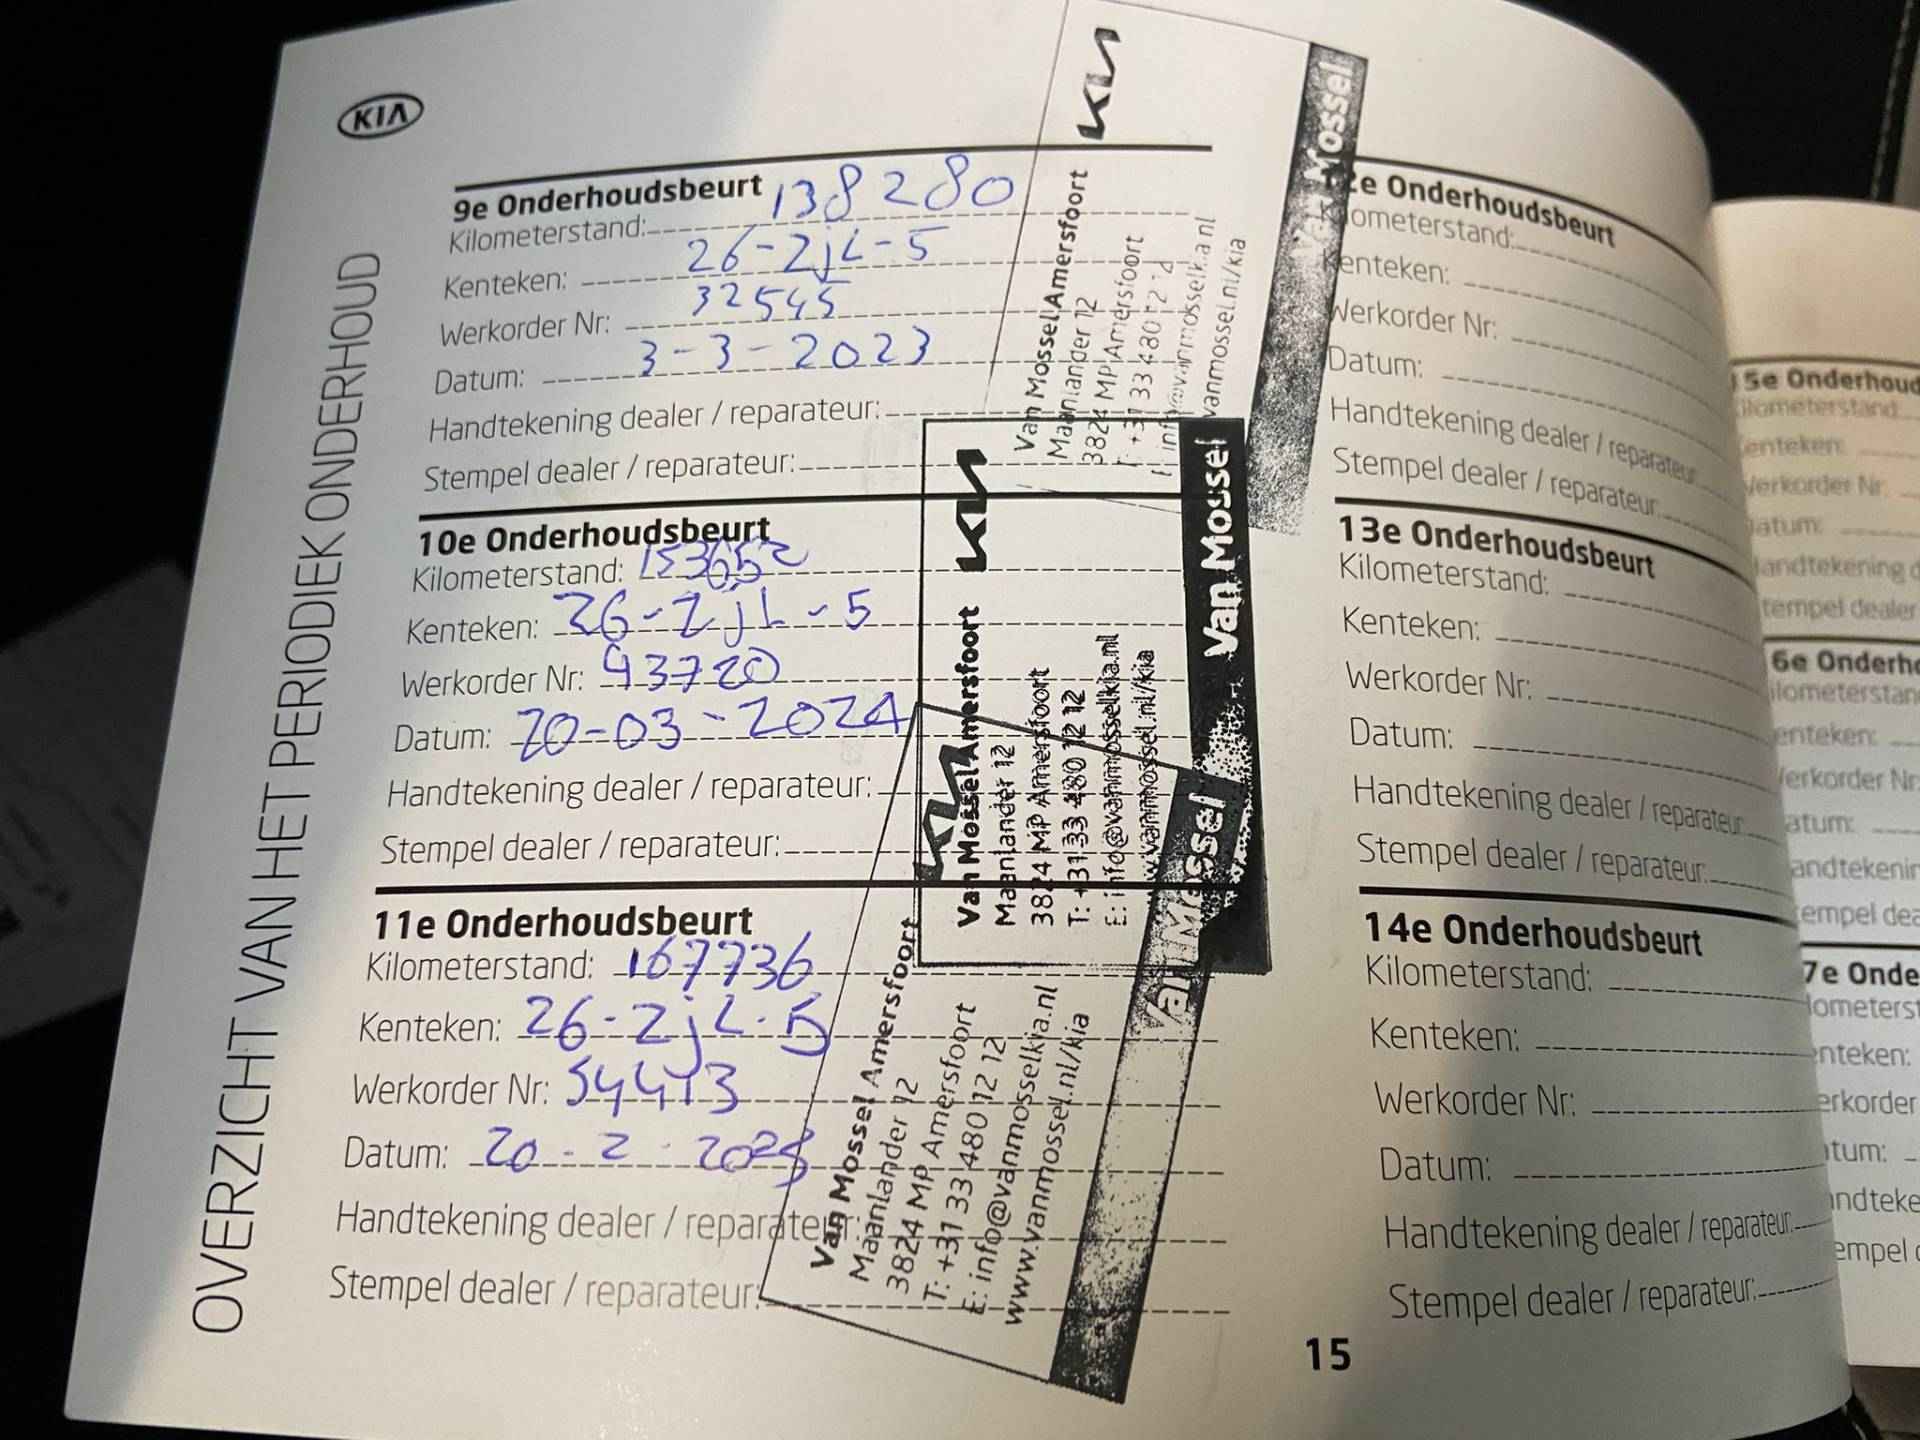 KIA
OVERZICHT VAN HET PERIODIEK ONDERHOUD
9e Onderhoudsbeurt
Kilometerstand: 138280
Kenteken: 26-ZjL-5
Werkorder Nr: 32545
Datum: 3-3-2023
Handtekening dealer / reparateur:
Stempel dealer / reparateur:
KIA
Van Mossel Amersfoort
Maanlander 12
3824 MP Amersfoort
vanmossel.nl/kia
Van Mossel
10e Onderhoudsbeurt
Kilometerstand: 153652
Kenteken: 26-ZjL-5
Werkorder Nr: 43720
Datum: 20-03-2024
Handtekening dealer / reparateur:
Stempel dealer / reparateur:
KIA
Van Mossel Amersfoort
Maanlander 12
3824 MP Amersfoort
T: +31 33 480 12 12
E: info@vanmosselkia.nl
www.vanmossel.nl/kia
Van Mossel
11e Onderhoudsbeurt
Kilometerstand: 167736
Kenteken: 26-ZjL-5
Werkorder Nr: 54413
Datum: 20-2-2025
Handtekening dealer / reparateur:
Stempel dealer / reparateur:
KIA
Van Mossel Amersfoort
Maanlander 12
3824 MP Amersfoort
T: +31 33 480 12 12
E: info@vanmosselkia.nl
www.vanmossel.nl/kia
Van Mossel
2e Onderhoudsbeurt
lometerstand:
Kenteken:
Werkorder Nr:
Datum:
Handtekening dealer / reparateur:
Stempel dealer / reparateur:
13e Onderhoudsbeurt
Kilometerstand:
Kenteken:
Werkorder Nr:
Datum:
Handtekening dealer / reparateur:
Stempel dealer / reparateur:
14e Onderhoudsbeurt
Kilometerstand:
Kenteken:
Werkorder Nr:
Datum:
Handtekening dealer / reparateur:
Stempel dealer / reparateur:
15
5e Onderhoud
ilometerstand
enteken:
Werkorder Nr:
atum:
andtekening d
tempel dealer
6e Onderho
ilometerstan
enteken:
erkorder Nr:
atum:
andtekenin
empel dea
7e Onde
lometerst
enteken:
erkorder
tum:
ndteke
empel d